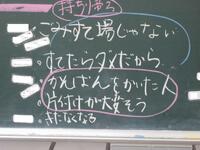 持ち帰ろ
ごみすて場じゃない
すてたらダメだから
かんばんをかいた人
片付すが大変そう
きたなくなる